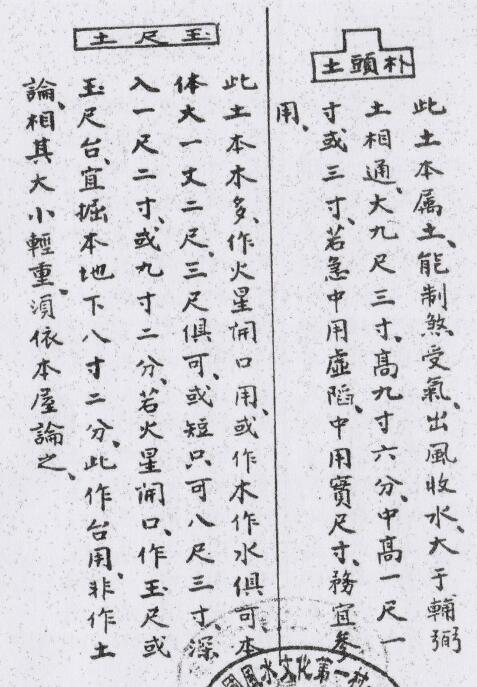 朴頭土
此土本属土、能制煞、受氣、出風收水、大于輔弼
土相通、大九尺三寸、髙九寸六分、中高一尺一
寸或三寸、若急中用虚陷、中用實尺寸、務宜参
用、
玉尺土
此土本木多、作火星開口用、或作木作水俱可、本
体大一丈二尺、三尺俱可、或短只可八尺三寸、深
入一尺二寸、或九寸二分、若火星開口、作玉尺或
玉尺台、宜掘本地下八寸二分、此作台用、非作土
論、相其大小輕重、須依本屋論之、
國風水文化第一村